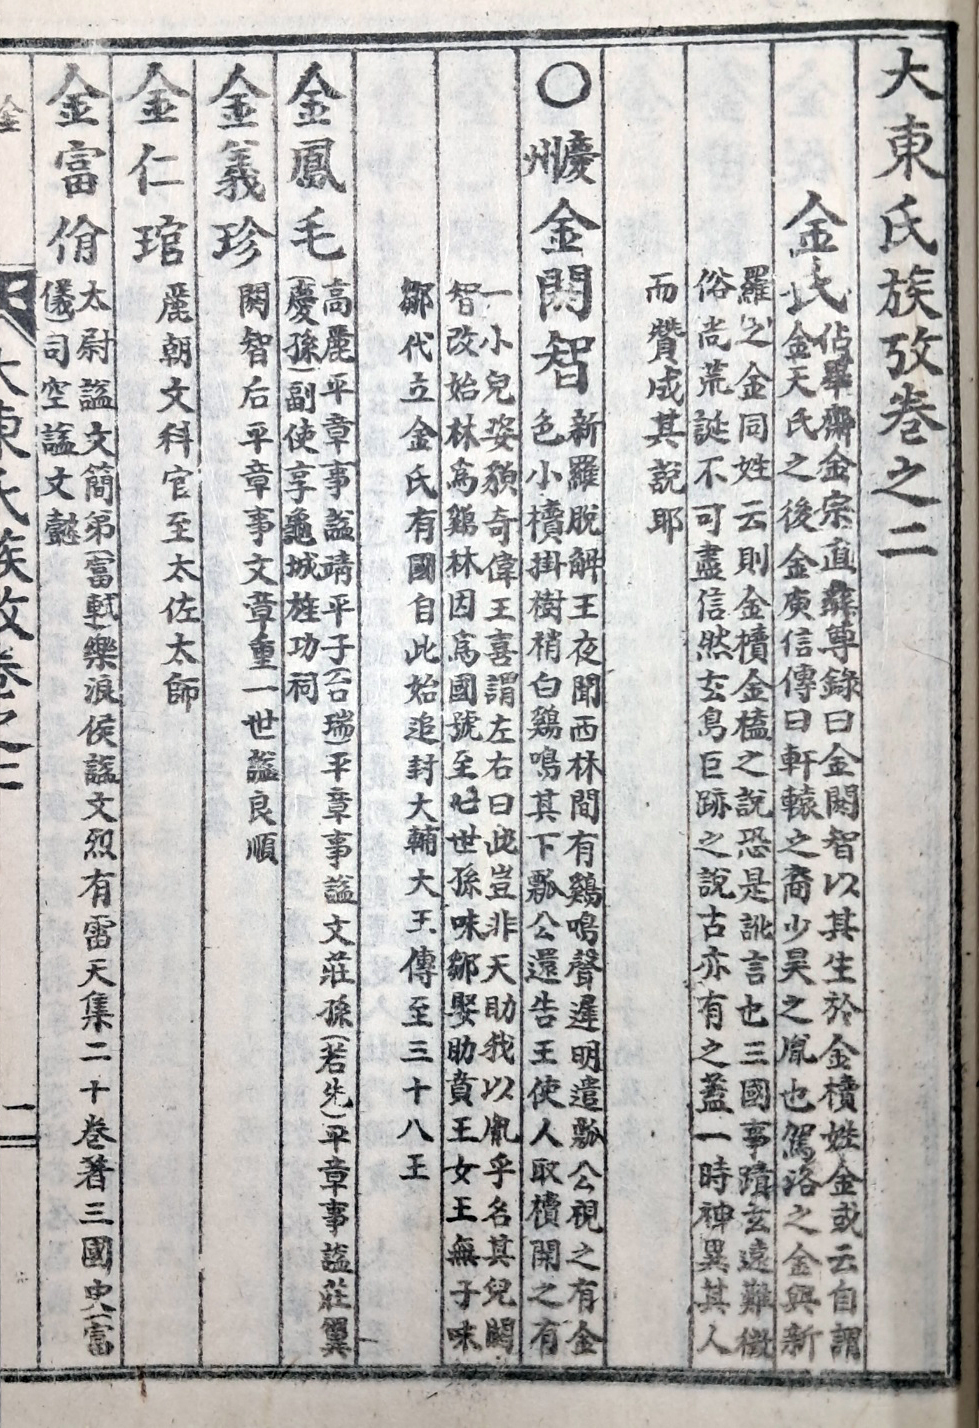 大東氏族攷卷之二
金氏
佔畢齋金宗直彝尊錄曰金閼智以其生於金櫝姓金或云自謂
金天氏之後金庾信傳曰軒轅之裔少昊之胤也駕洛之金與新
羅之金同姓云則金櫝金榼之說恐是訛言也三國事蹟玄遠難徵
俗尚荒誕不可盡信然玄鳥巨跡之說古亦有之蓋一時神異其人
而贊成其說耶
〇慶州金閼智
新羅脫解王夜聞西林間有鷄鳴聲遲明遣瓢公視之有金
色小櫝掛樹梢白鷄鳴其下瓢公還告王使人取櫝開之有
一小兒姿貌奇偉王喜謂左右曰此豈非天助我以胤乎名其兒閼
智改始林爲鷄林因爲國號至七世孫味鄒娶助賁王女王無子味
鄒代立金氏有國自此始追封大輔大王傳至三十八王
金鳳毛
高麗平章事謚靖平子(台瑞)平章事謚文莊孫(若先)平章事謚莊翼
(慶孫)副使享龜城旌功祠
金義珍
閼智后平章事文章重一世謚良順
金仁琯
麗朝文科官至太佐太師
金富佾
太尉謚文簡弟(富軾)樂浪侯謚文烈有雷天集二十卷著三國史(富
儀)司空謚文懿
金
大東氏族攷卷之二
二